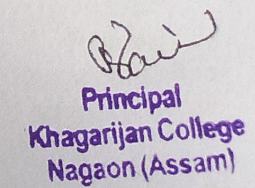 Principal
Khagarijan College
Nagaon (Assam)